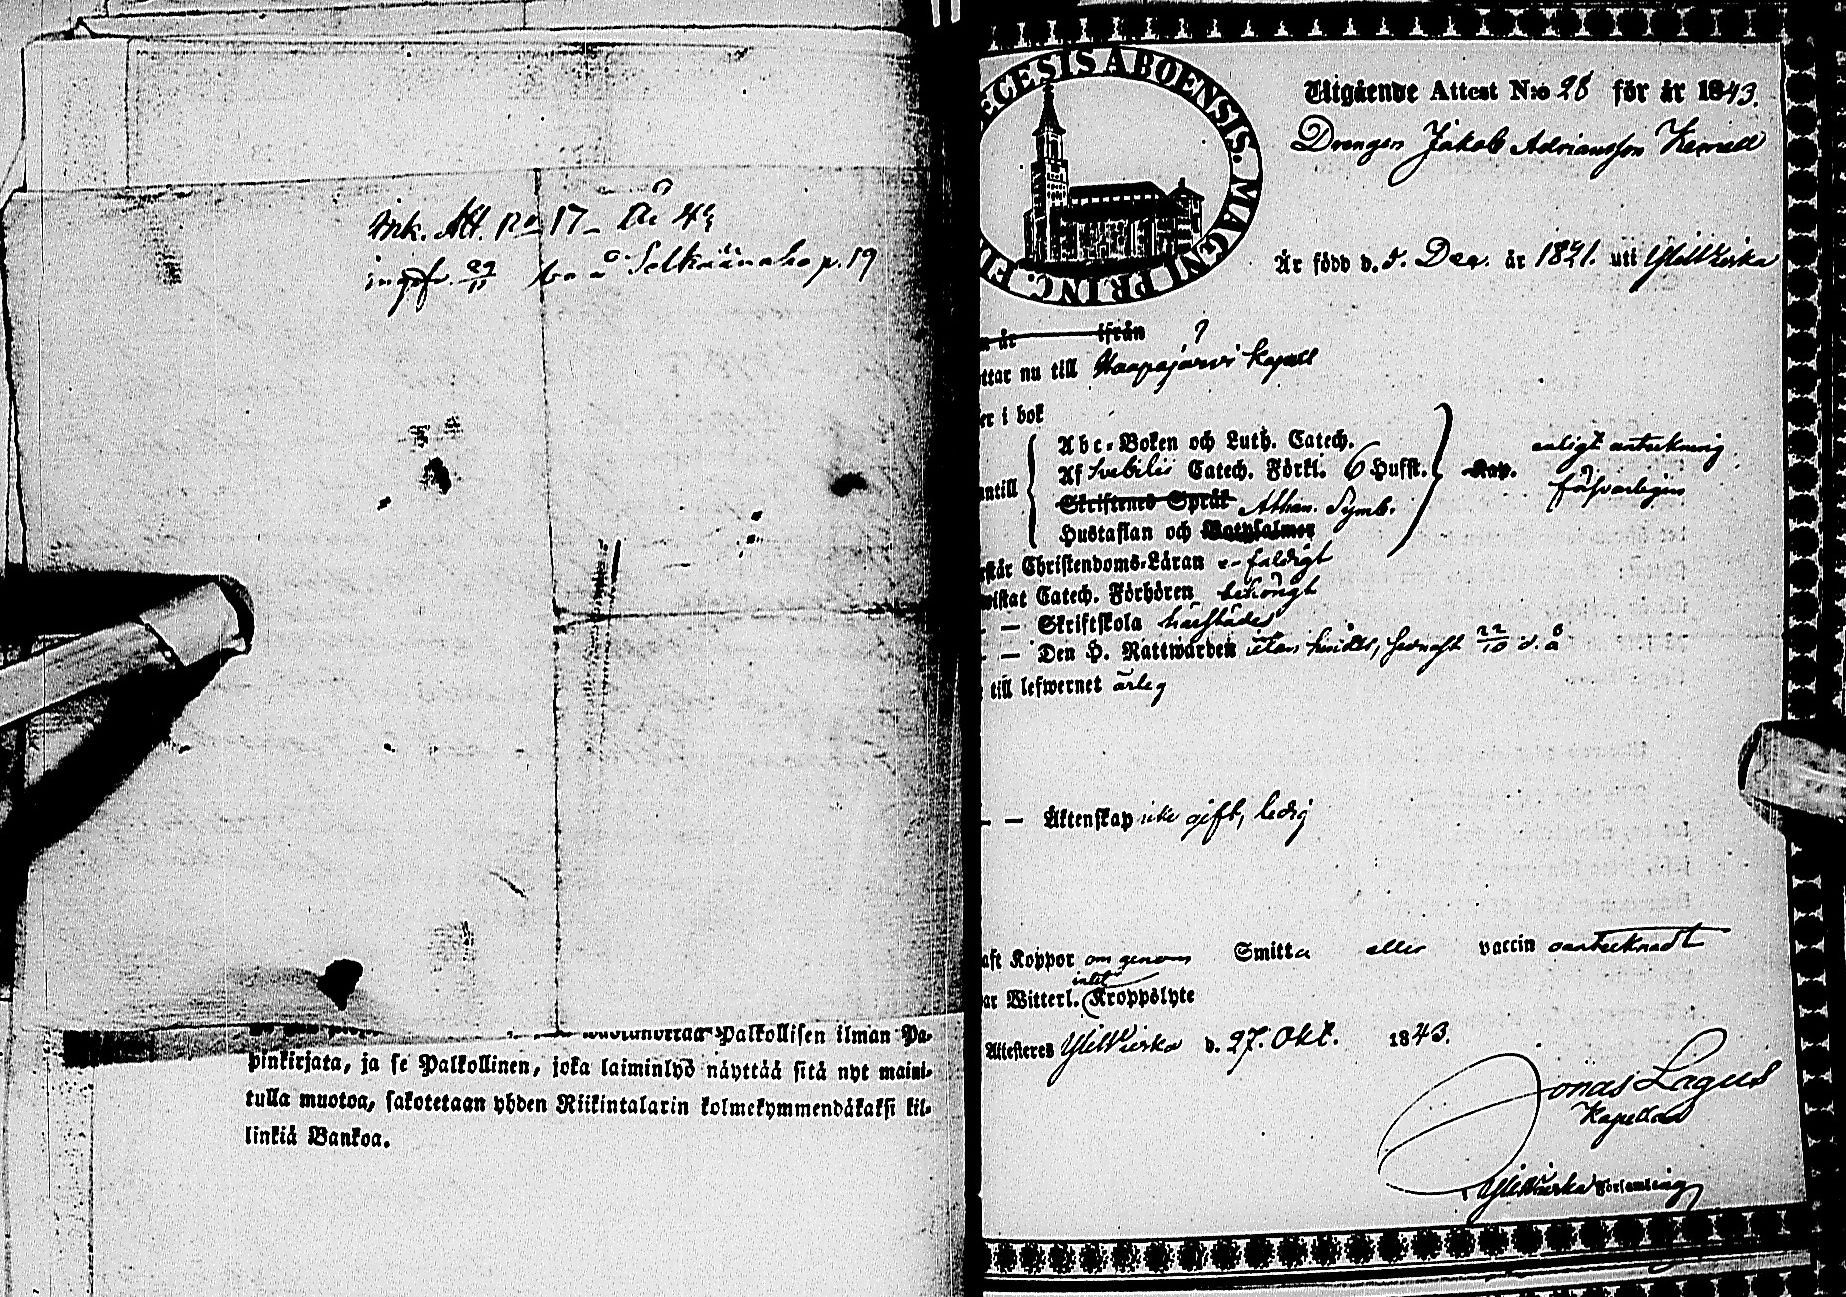 Ink. Att. No 17 –
ingfr. 29/11 Selkäänaho p. 19
Palkollisen ilman Pa-
pinkirjata, ja se Palkollinen, joka laiminlyö näyttää sitä nyt maini-
tulla muotoa, sakotetaan yhden Riikintalarin kolmekymmendäkaksi kil-
linkiä Bankoa.
ECESIS ABOENSIS. MAGNI PRINC. FI
Utgående Attest N:o 28 för år 1843.
Drengen Jakob Adriansson
Är född d. 5. Dec. år 1821. uti Ylivieska
år ifrån ?
ttar nu till Haapajärvi Kapell
er i bok
Abc-Boken och Luth. Catech.
Af Svebilii Catech. Förkl. 6 Hufst. enligt anteckning
antill Skriftenes Språk Athan. Symb. försvarligen
Hustaflan och Botpsalmer
står Christendoms-Läran e-faldigt
wistat Catech. Förhören behörigt
— — Skriftskola härstädes
— — Den H. Nattwarden utan hinder, senast 22/10 d. å
till lefwernet ärlig
— — Äktenskap icke gift, ledig
aft Koppor om genom Smitta eller vaccin oantecknadt
ar Witterl. intet Kroppslyte
Attesteres Ylivieska d. 27. Okt. 1843.
Jonas Lagus
Kapellan
Ylivieska Församling